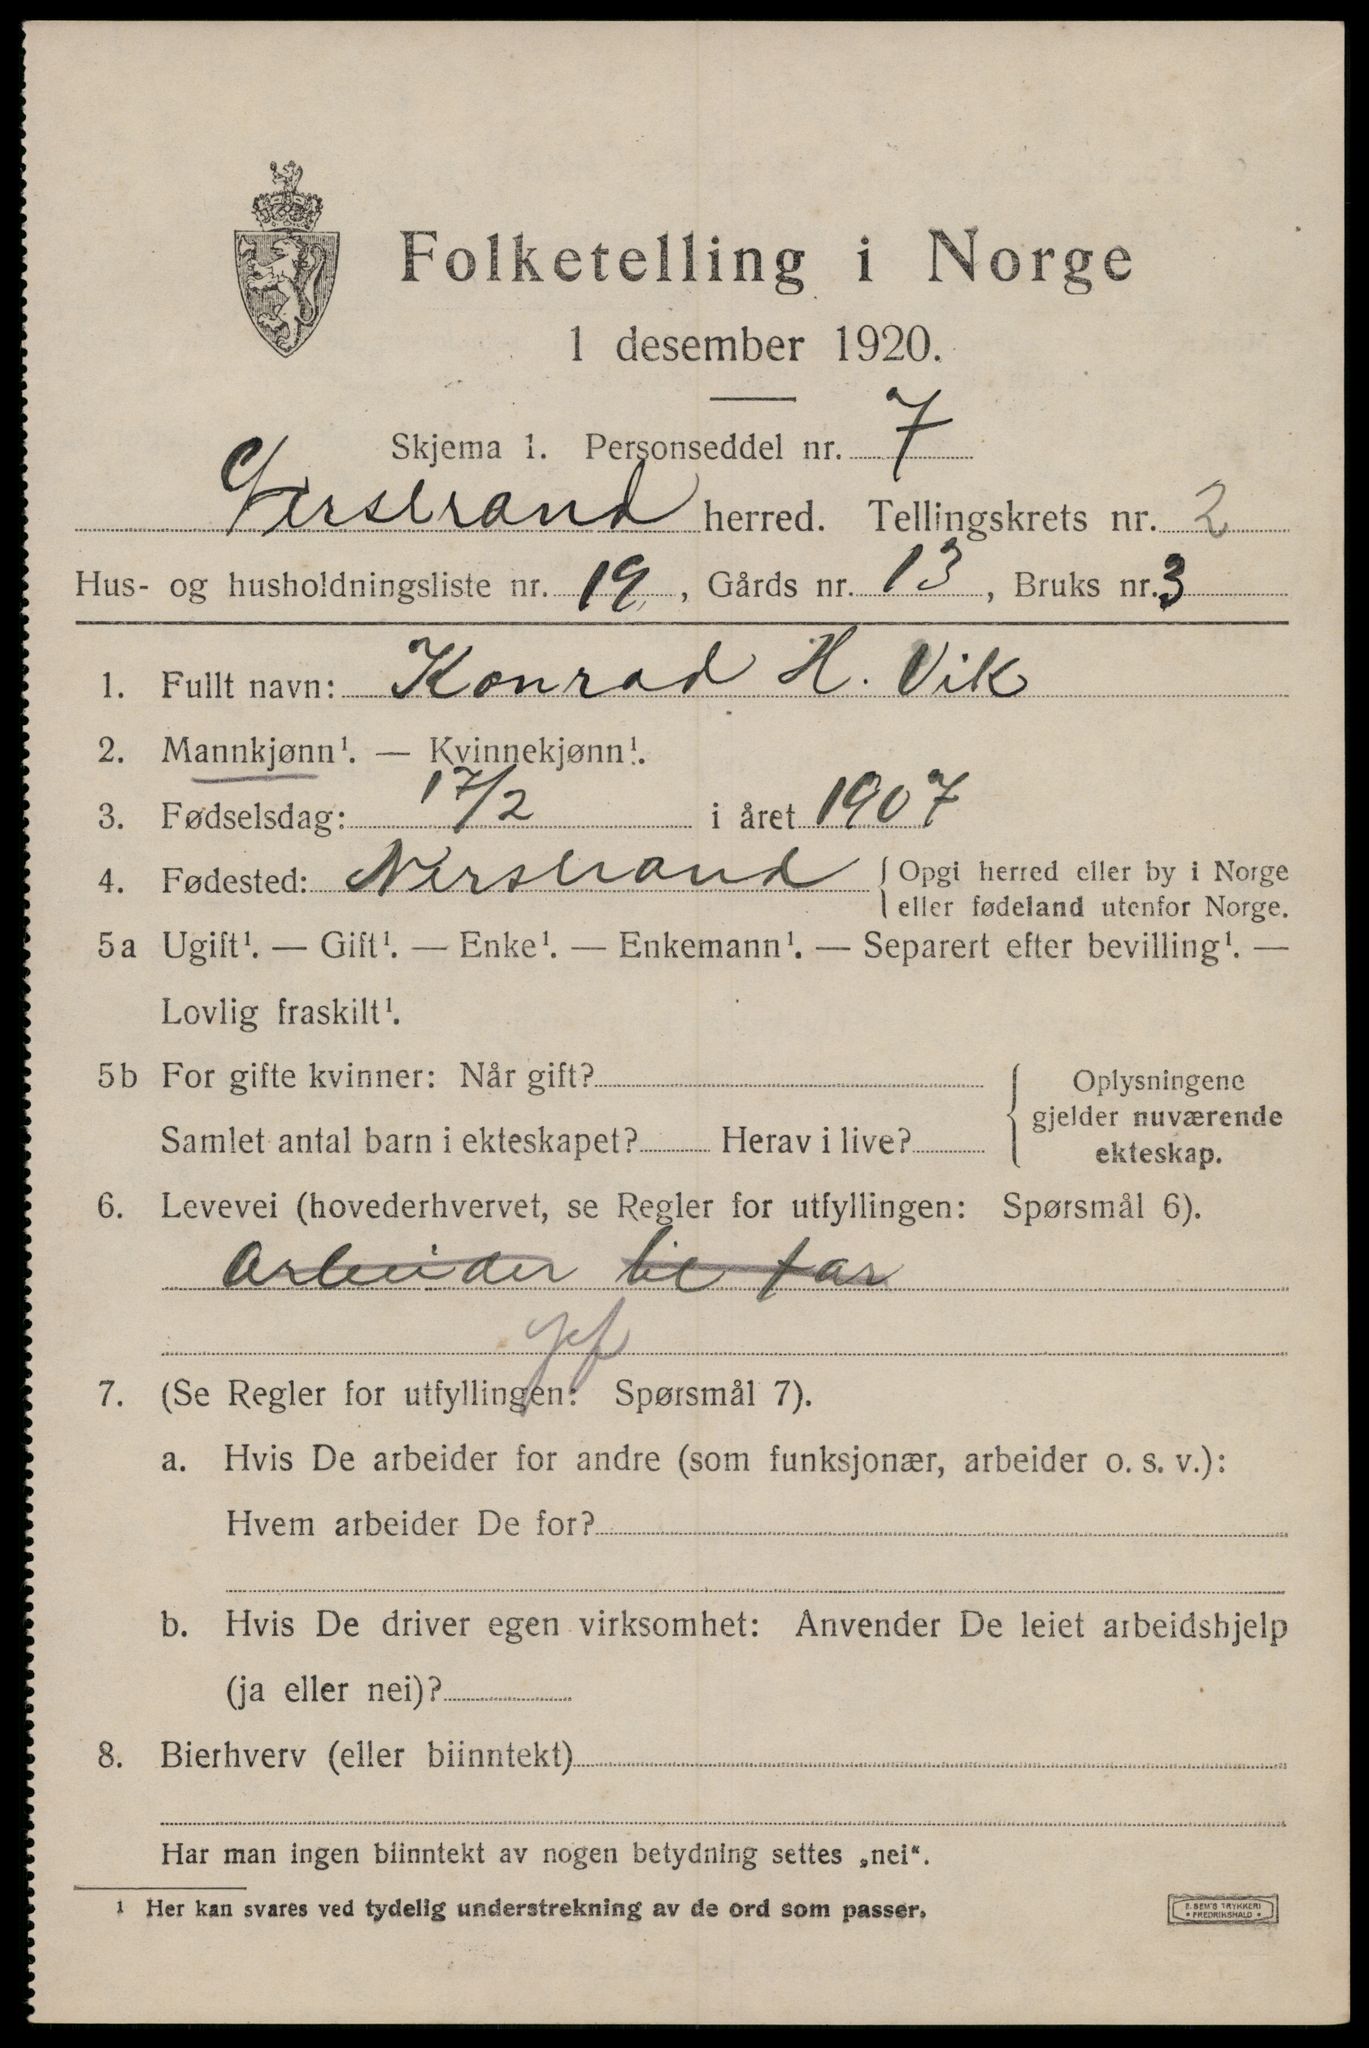 Folketelling i Norge
1 desember 1920.
Skjema 1. Personseddel nr. 7
Nerstrand herred. Tellingskrets nr. 2
Hus- og husholdningsliste nr. 19, Gårds nr. 13, Bruks nr. 3
1. Fullt navn: Konrad H. Vik
2. Mannkjønn¹. — Kvinnekjønn¹.
3. Fødselsdag: 17/2 i året 1907
4. Fødested: Nerstrand { Opgi herred eller by i Norge
eller fødeland utenfor Norge.
5a Ugift¹. — Gift¹. — Enke¹. — Enkemann¹. — Separert efter bevilling¹. —
Lovlig fraskilt¹.
5b For gifte kvinner: Når gift? { Oplysningene
gjelder nuværende
Samlet antal barn i ekteskapet? Herav i live?
ekteskap.
6. Levevei (hovederhvervet, se Regler for utfyllingen: Spørsmål 6).
Arbeider til far
7. (Se Regler for utfyllingen: Spørsmål 7).
a. Hvis De arbeider for andre (som funksjonær, arbeider o. s. v.):
Hvem arbeider De for?
b. Hvis De driver egen virksomhet: Anvender De leiet arbeidshjelp
(ja eller nei)?
8. Bierhverv (eller biinntekt)
Har man ingen biinntekt av nogen betydning settes „nei“.
¹ Her kan svares ved tydelig understrekning av de ord som passer.
E. SEM'S TRYKKERI
• FREDRIKSHALD •